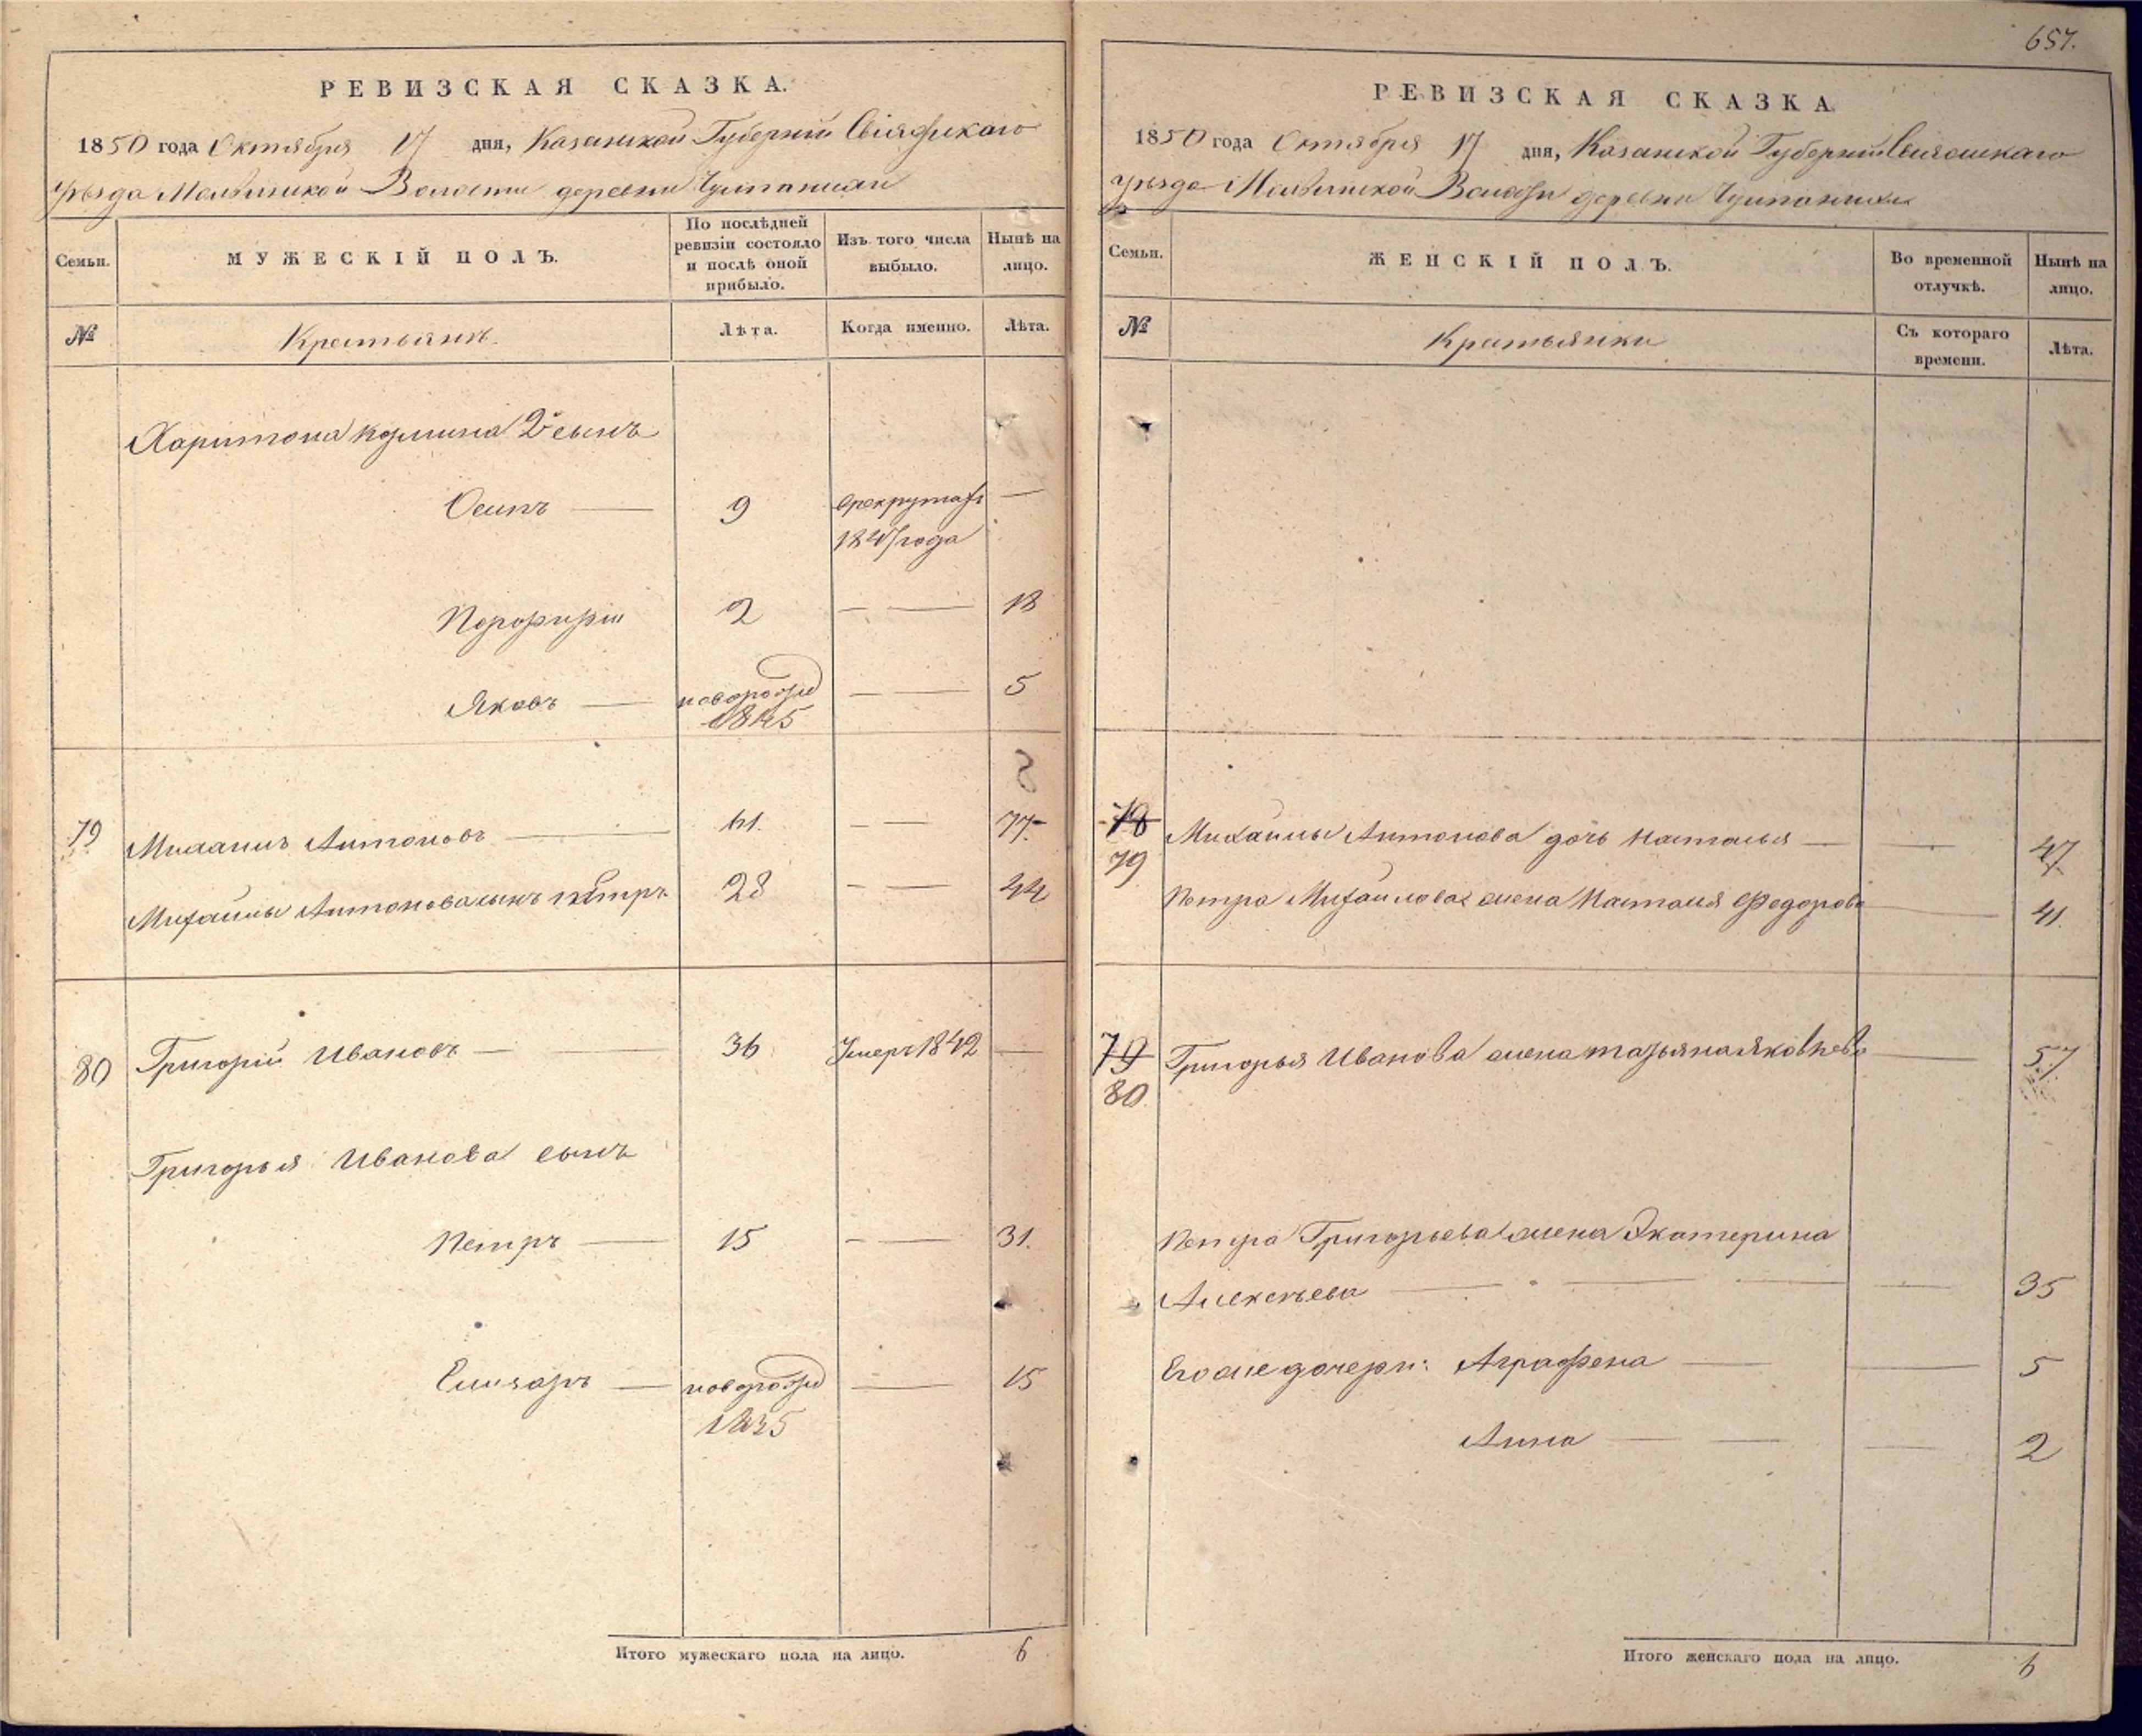 РЕВИЗСКАЯ СКАЗКА.
1850 года Октября 17 дня, Казанской Губерніи Свіяжскаго
уѣзда Волости деревни
Семьи.
МУЖЕСКІЙ ПОЛЪ.
По послѣдней ревизіи состояло и послѣ оной прибыло.
Изъ того числа выбыло.
Нынѣ на лицо.
№
Крестьянъ.
Лѣта.
Когда именно.
Лѣта.
Харитона Кузмина 2й сынъ
Осипъ — 9 врекрутахъ —
1847 года
Порфирій 2 — — 18
Яковъ — новорожд — — 5
1845
8
79 Михаилъ Антоновъ — 61. — — 77
Михаилы Антонова сынъ Петръ 28 — — 44
80 Григорій Ивановъ — — 36 Умеръ 1842 —
Григорья Иванова сынъ
Петръ — 15 — — 31.
Елизаръ — новорожд — 15
1835
Итого мужескаго пола на лицо. 6
657.
РЕВИЗСКАЯ СКАЗКА
1850 года Октября 17 дня, Казанской Губерніи Свіяжскаго
уѣзда Волости деревни
Семьи.
ЖЕНСКІЙ ПОЛЪ.
Во временной отлучкѣ.
Нынѣ на лицо.
№
Крестьянки
Съ котораго времени.
Лѣта.
78 Михаилы Антонова дочь Наталья — — 47
79
Петра Михаилова жена Наталья Федорова — 41.
79 Григорья Иванова жена Татьяна Яковлева — 57
80
Петра Григорьева жена Экатерина
Алексѣева — — — — 35
Егоже дочери: Аграфена — — 5
Анна — — — 2
Итого женскаго пола на лицо. 6